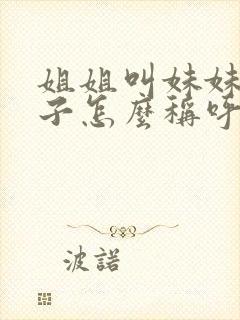 姐姐叫妹妹
子怎麼稱呼
波諾